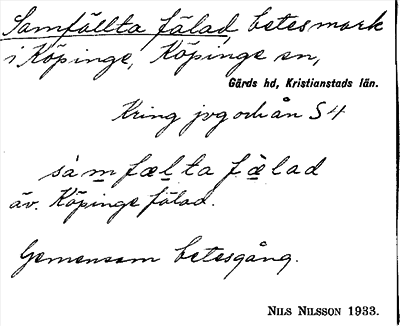 Samfällta fälad, betesmark
i Köpinge, Köpinge sn,
Gärds hd, Kristianstads län.
Kring jvg och ån S4
såmfælta fælad
äv. Köpinge fälad.
Gemensam betesgång.
NILS NILSSON 1933.